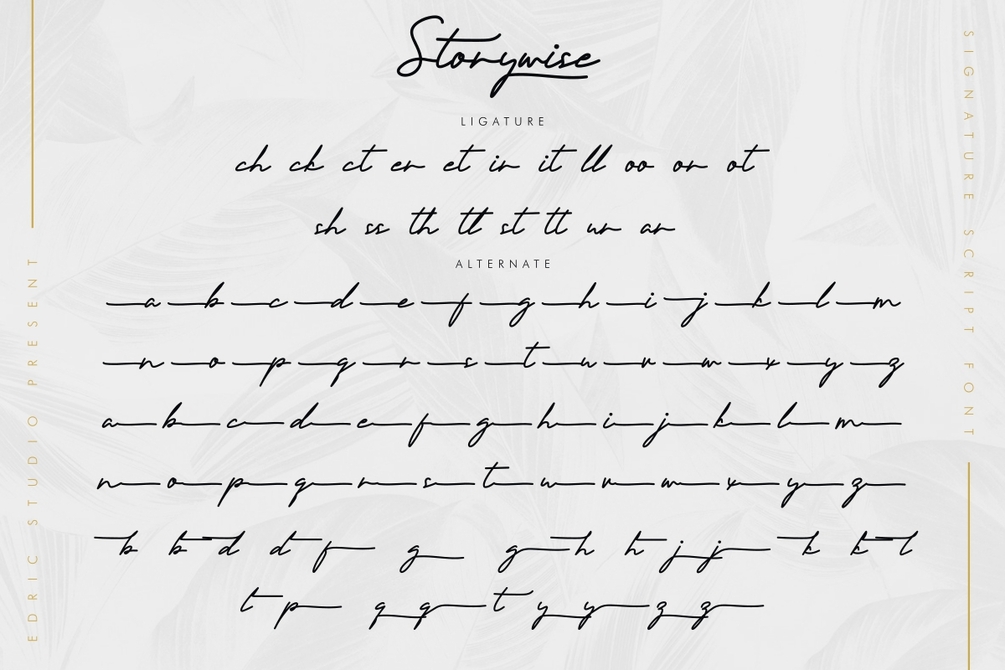 Storywise
LIGATURE
ch ck ct er et ir it ll oo or ot
sh ss th tt st tt ur ar
ALTERNATE
a b c d e f g h i j k l m
n o p q r s t u v w x y z
a b c d e f g h i j k l m
n o p q r s t u v w x y z
b b d d f g g h h j j k k l
t p q q t y y z z
EDRIC STUDIO PRESENT
SIGNATURE SCRIPT FONT